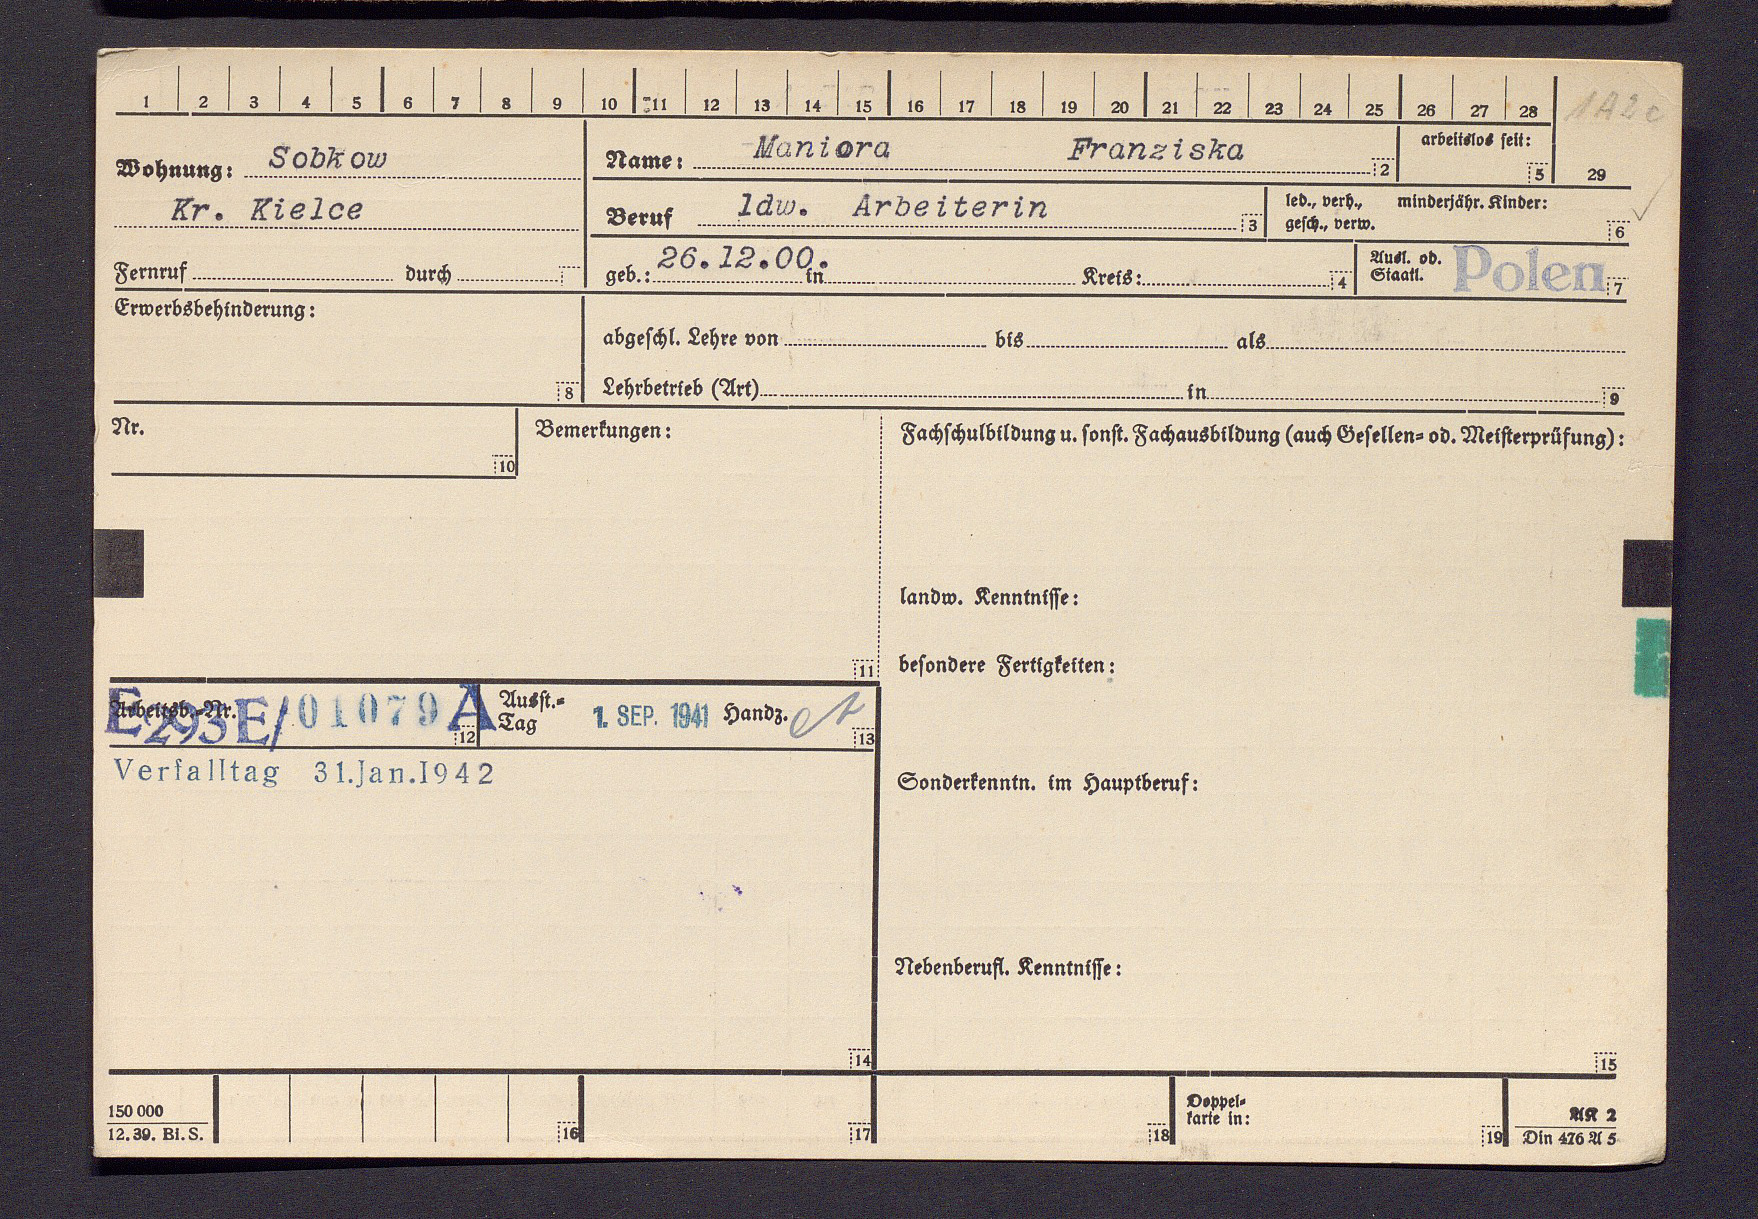 1 2 3 4 5 6 7 8 9 10 11 12 13 14 15 16 17 18 19 20 21 22 23 24 25 26 27 28
1A2c
Wohnung: Sobkow
Kr. Kielce
Fernruf durch
Name: Maniora Franziska 2
arbeitslos seit: 5
29
Beruf ldw. Arbeiterin 3
led., verh., minderjähr. Kinder:
gesch., verw. 6
geb.: 26.12.00. in Kreis: 4
Ausl. od.
Staatl. Polen 7
Erwerbsbehinderung:
8
abgeschl. Lehre von bis als
Lehrbetrieb (Art) in 9
Nr.
10
Bemerkungen:
11
Fachschulbildung u. sonst. Fachausbildung (auch Gesellen- od. Meisterprüfung):
landw. Kenntnisse:
besondere Fertigkeiten:
Arbeitsb.-Nr.
E293E/01079A 12
Ausst.-
Tag 1. SEP. 1941 Handz. 13
Verfalltag 31.Jan.1942
14
Sonderkenntn. im Hauptberuf:
Nebenberufl. Kenntnisse:
15
150 000
12. 39. Bi. S.
16 17 18
Doppel-
karte in:
19
AK 2
Din 476 A 5